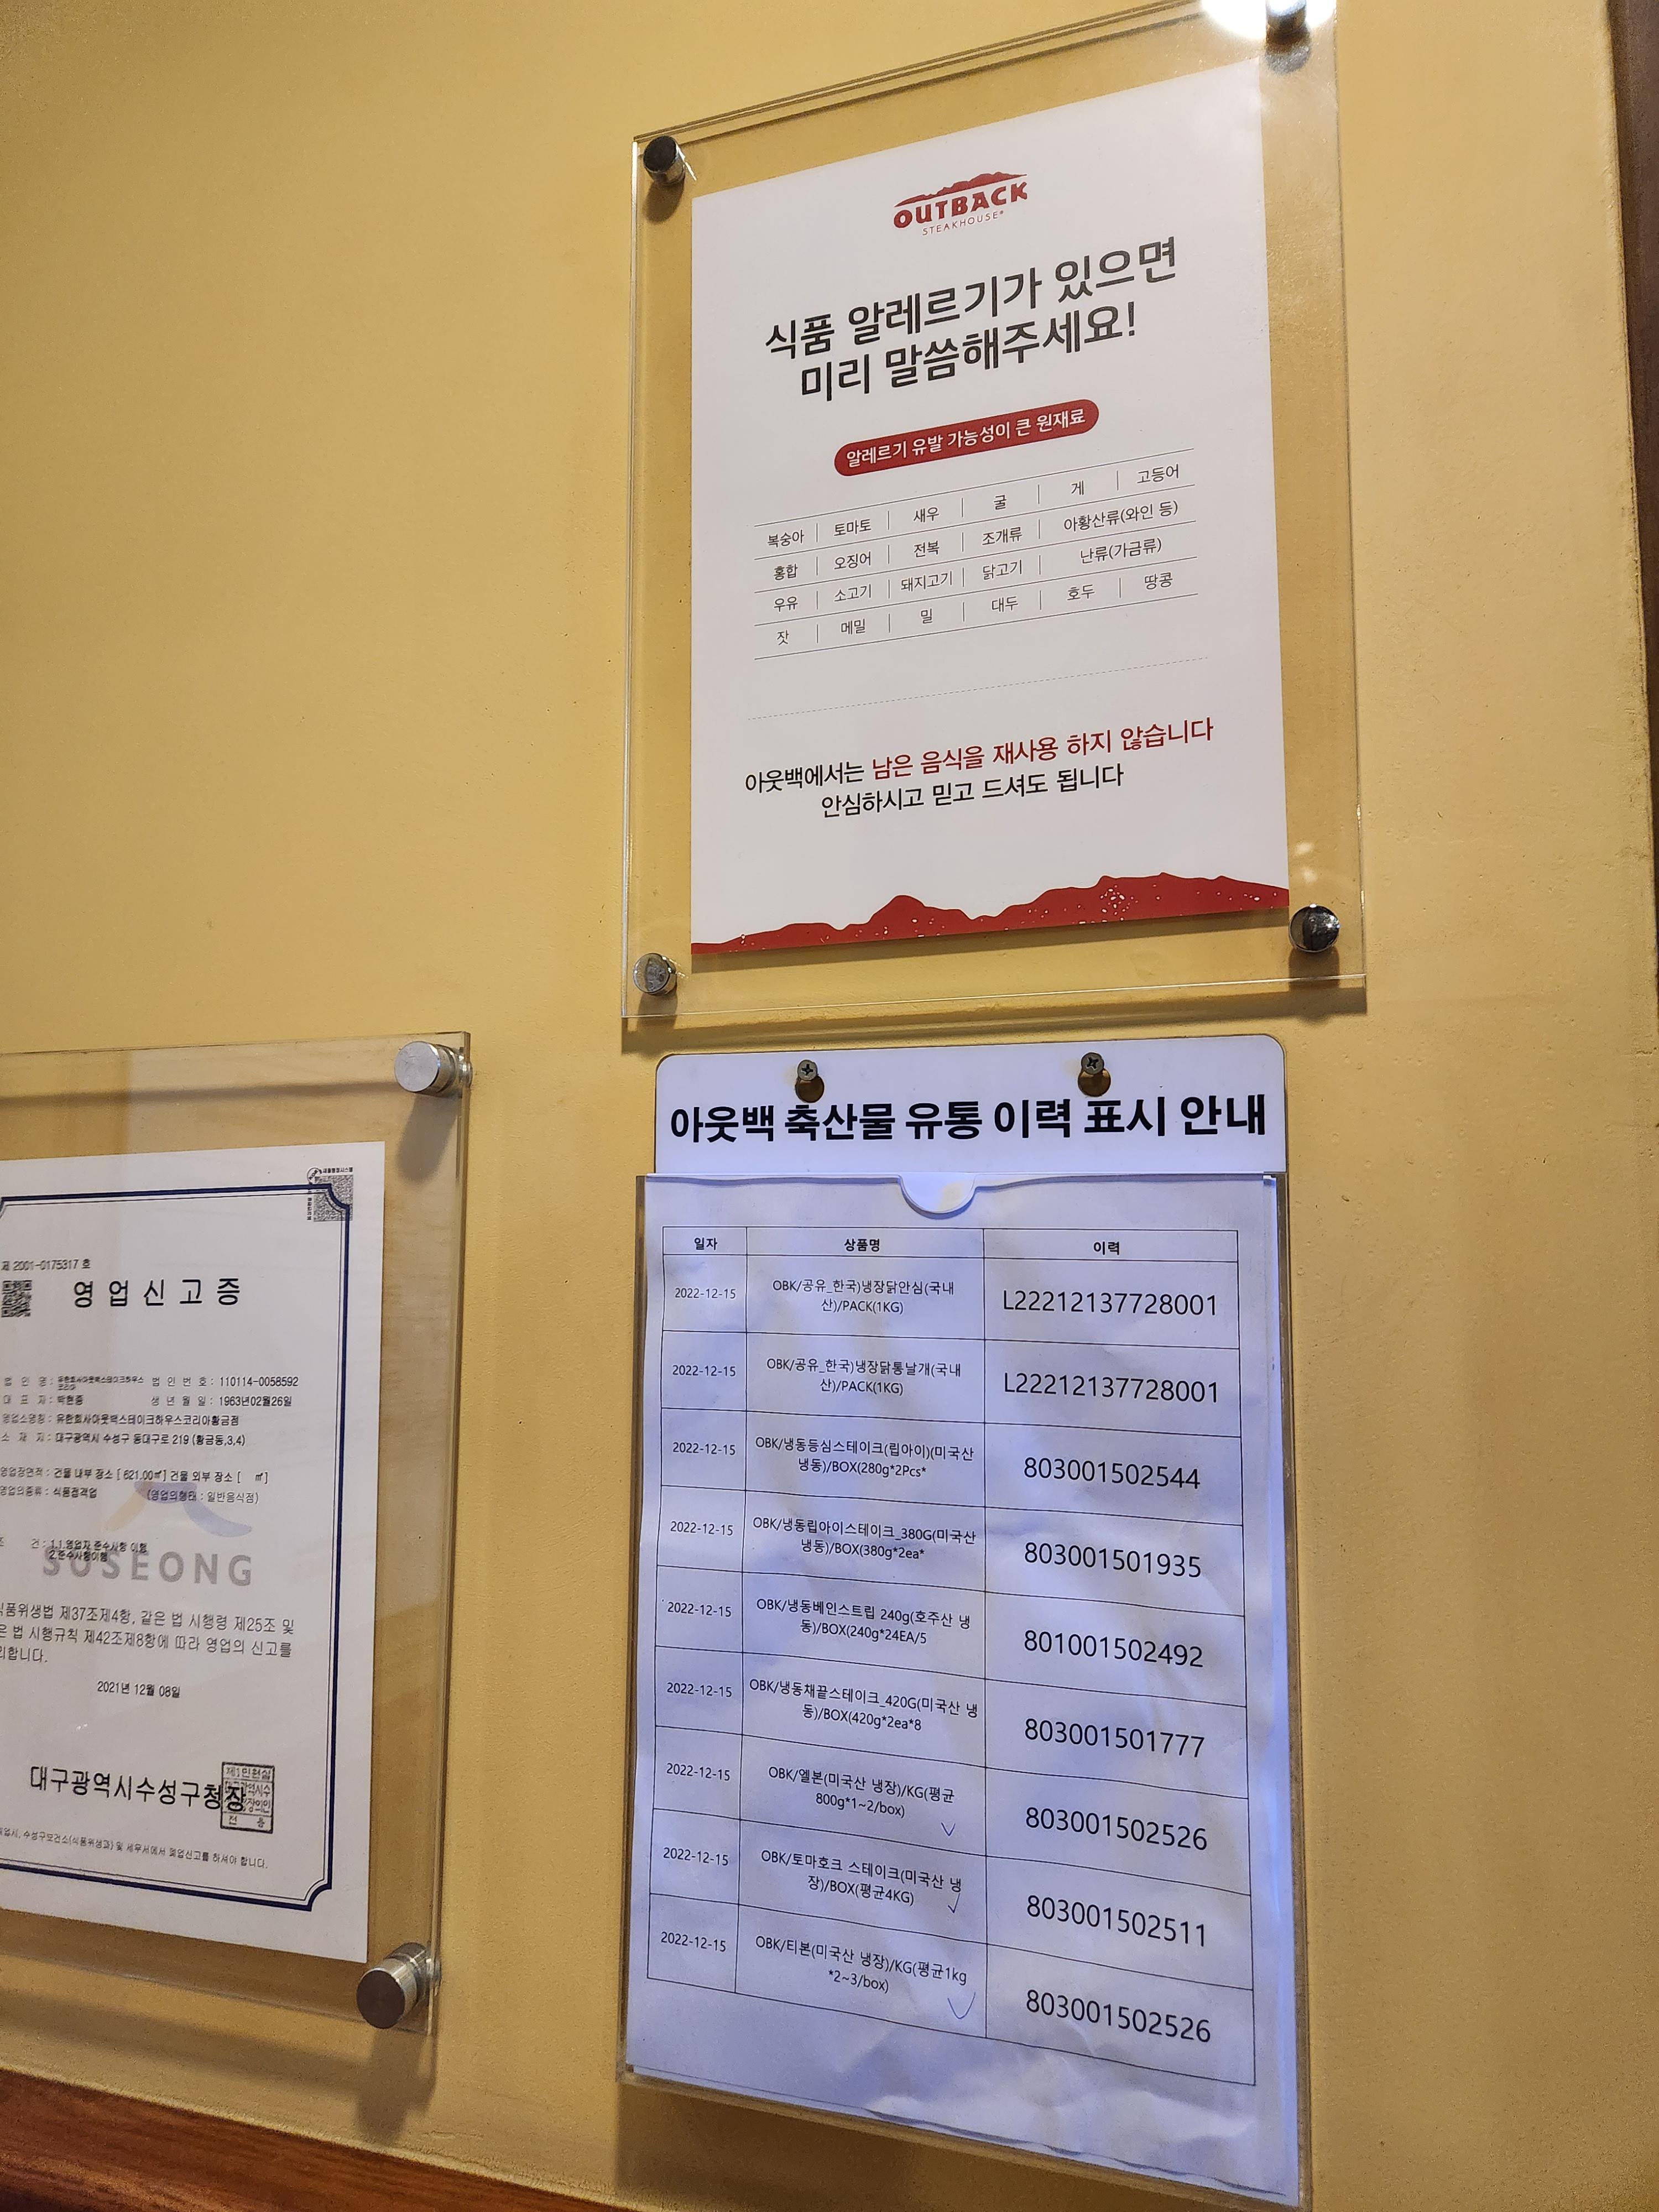 OUTBACK
STEAKHOUSE®
식품 알레르기가 있으면
미리 말씀해주세요!
알레르기 유발 가능성이 큰 원재료
복숭아 토마토 새우 굴 게 고등어
홍합 오징어 전복 조개류 아황산류(와인 등)
우유 소고기 돼지고기 닭고기 난류(가금류)
잣 메밀 밀 대두 호두 땅콩
아웃백에서는 남은 음식을 재사용 하지 않습니다
안심하시고 믿고 드셔도 됩니다
아웃백 축산물 유통 이력 표시 안내
일자 상품명 이력
2022-12-15 OBK/공유_한국)냉장닭안심(국내
산)/PACK(1KG) L22212137728001
2022-12-15 OBK/공유_한국)냉장닭통날개(국내
산)/PACK(1KG) L22212137728001
2022-12-15 OBK/냉동등심스테이크(립아이)(미국산
냉동)/BOX(280g*2Pcs* 803001502544
2022-12-15 OBK/냉동립아이스테이크_380G(미국산
냉동)/BOX(380g*2ea* 803001501935
2022-12-15 OBK/냉동베인스트립 240g(호주산 냉
동)/BOX(240g*24EA/5 801001502492
2022-12-15 OBK/냉동채끝스테이크_420G(미국산 냉
동)/BOX(420g*2ea*8 803001501777
2022-12-15 OBK/엘본(미국산 냉장)/KG(평균
800g*1~2/box) 803001502526
2022-12-15 OBK/토마호크 스테이크(미국산 냉
장)/BOX(평균4KG) 803001502511
2022-12-15 OBK/티본(미국산 냉장)/KG(평균1kg
*2~3/box) 803001502526
제 2001-0175317 호
영업신고증
법 인 명 : 유한회사아웃백스테이크하우스
코리아 법 인 번 호 : 110114-0058592
대 표 자 : 박현종 생 년 월 일 : 1963년02월26일
영업소명칭 : 유한회사아웃백스테이크하우스코리아황금점
소 재 지 : 대구광역시 수성구 동대구로 219 (황금동,3,4)
영업장면적 : 건물 내부 장소 [ 621.00㎡] 건물 외부 장소 [ ㎡]
영업의종류 : 식품접객업 (영업의형태 : 일반음식점)
건 : 1.1.영업자 준수사항 이행
2.준수사항이행
SUSEONG
식품위생법 제37조제4항, 같은 법 시행령 제25조 및
은 법 시행규칙 제42조제8항에 따라 영업의 신고를
리합니다.
2021년 12월 08일
대구광역시수성구청장
수성구보건소(식품위생과) 및 세무서에서 폐업신고를 하셔야 합니다.